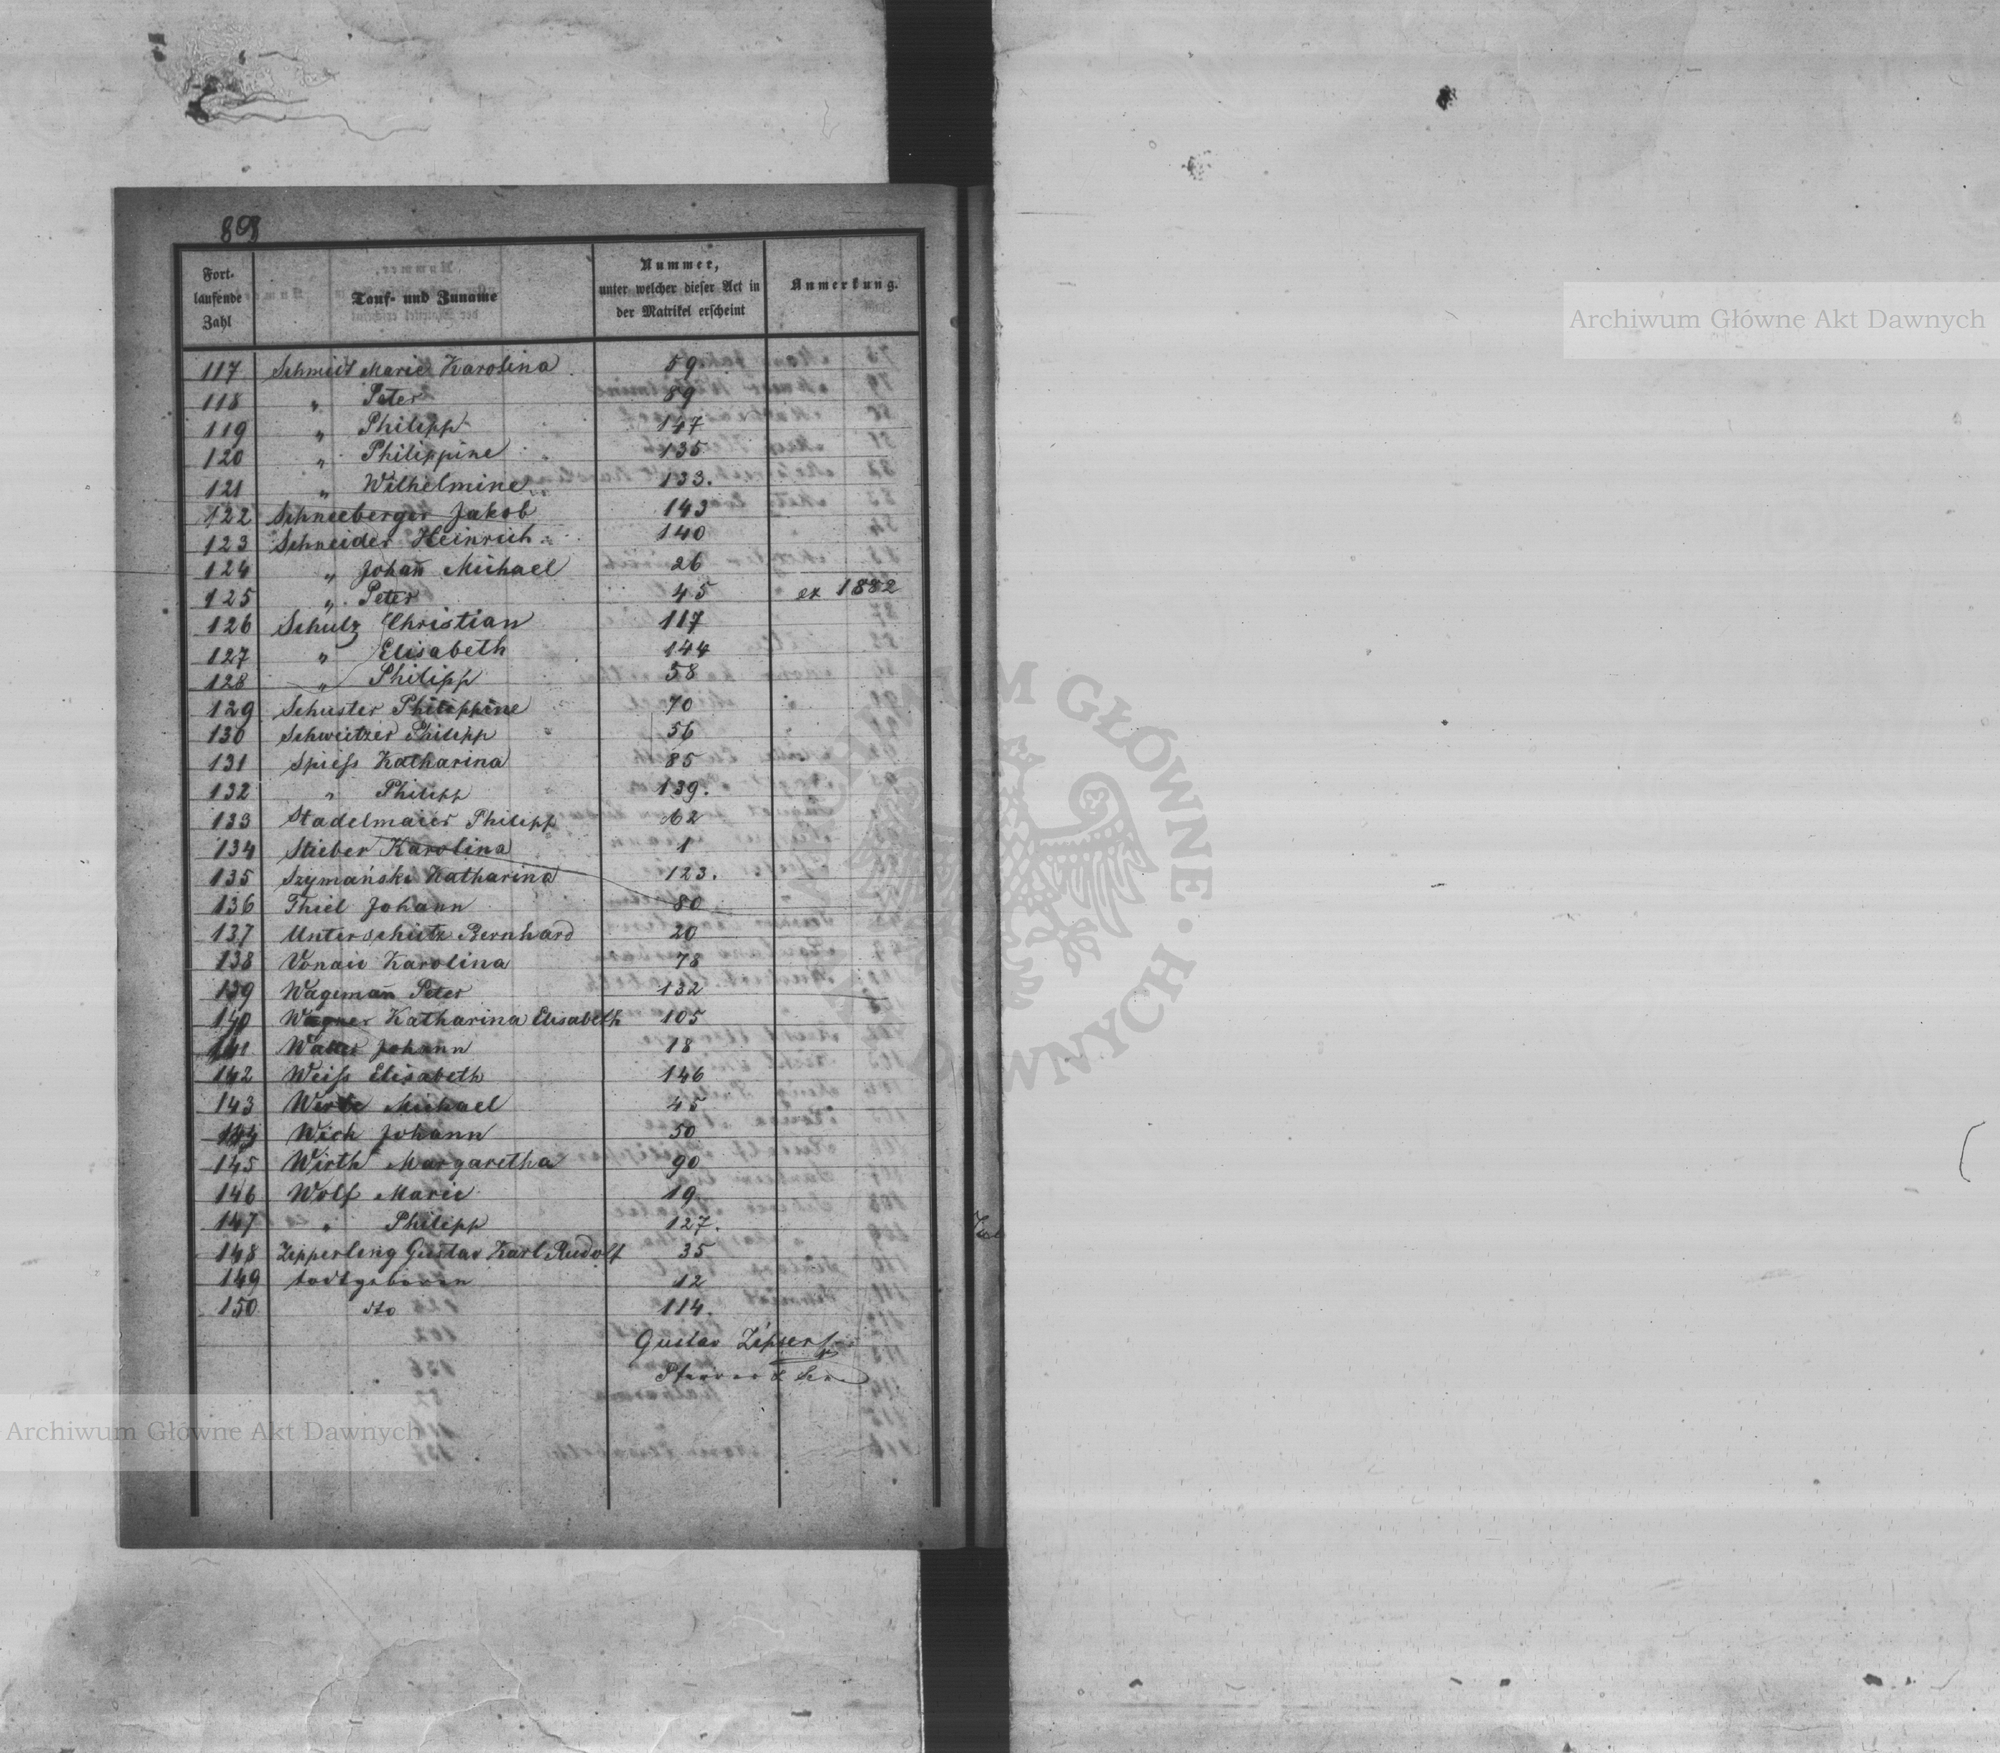 898
Fort-
laufende
Zahl
Tauf- und Zuname
Nummer,
unter welcher dieser Act in
der Matrikel erscheint
Anmerkung.
117 Schmidt Marie Karolina 59.
118 " Peter 89
119 " Philipp 147
120 " Philippine 135
121 " Wilhelmine 133.
122 Schneeberger Jakob 143
123 Schneider Heinrich 140
124 " Johañ Michael 26
125 " Peter 45 ex 1882
126 Schulz Christian 117
127 " Elisabeth 144
128 " Philipp 58
129 Schuster Philippine 70
130 Schweitzer Philipp 56
131 Spiess Katharina 85
132 " Philipp 139.
133 Stadelmaier Philipp 62
134 Stieber Karolina 1
135 Szymański Katharina 123.
136 Thiel Johann 80
137 Unterschütz Bernhard 20
138 Vonau Karolina 78
139 Wagemañ Peter 132
140 Wagner Katharina Elisabeth 105
141 Walter Johann 18
142 Weiss Elisabeth 146
143 Michael 45
144 Wich Johann 50
145 Wirth Margaretha 90
146 Wolf Marie 19
147 " Philipp 127.
148 Zipperling Gustav Karl Rudolf 35
149 todtgeboren 12
150 dto 114.
Gustav Zipser
Pfarrer & Sen
Archiwum Główne Akt Dawnych
Archiwum Główne Akt Dawnych
ARCHIWUM GŁÓWNE AKT DAWNYCH